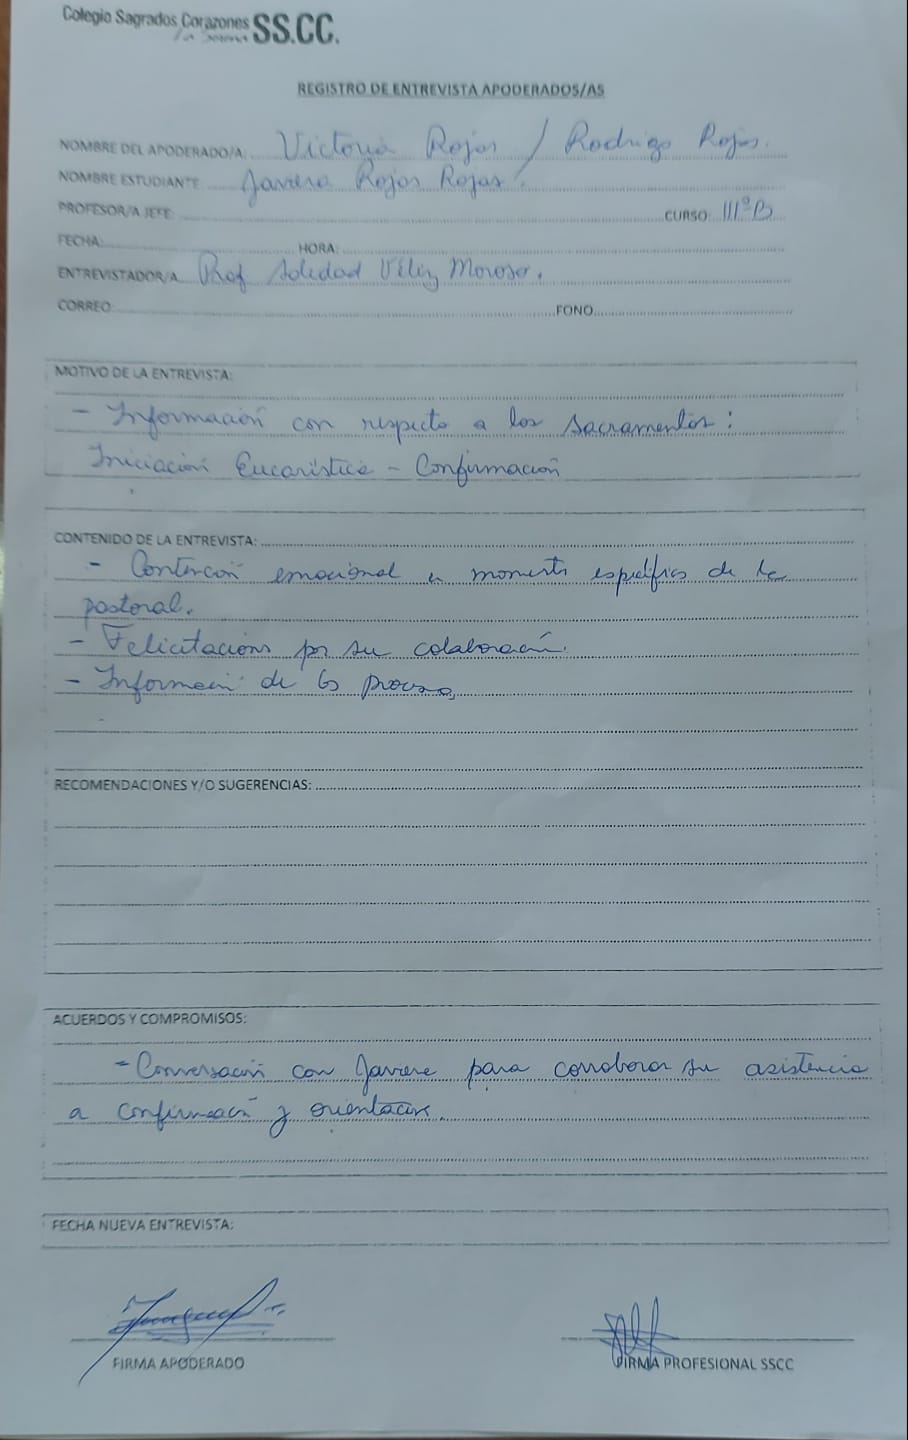 Colegio Sagrados Corazones SS.CC.
La Serena
REGISTRO DE ENTREVISTA APODERADOS/AS
NOMBRE DEL APODERADO/A: Victoria Rojas / Rodrigo Rojas.
NOMBRE ESTUDIANTE Javiera Rojas Rojas.
PROFESOR/A JEFE: CURSO: IIIºB
FECHA: HORA:
ENTREVISTADOR/A. Prof Soledad Véliz Moroso.
CORREO: FONO
MOTIVO DE LA ENTREVISTA:
- Información con respecto a los sacramentos:
Iniciación Eucarística - Confirmación
CONTENIDO DE LA ENTREVISTA:
- Contención emocional en momentos específicos de la
pastoral.
- Felicitaciones por su colaboración.
- Información de los procesos
RECOMENDACIONES Y/O SUGERENCIAS:
ACUERDOS Y COMPROMISOS:
- Conversación con Javiera para corroborar su asistencia
a confirmación y orientación.
FECHA NUEVA ENTREVISTA:
FIRMA APODERADO FIRMA PROFESIONAL SSCC